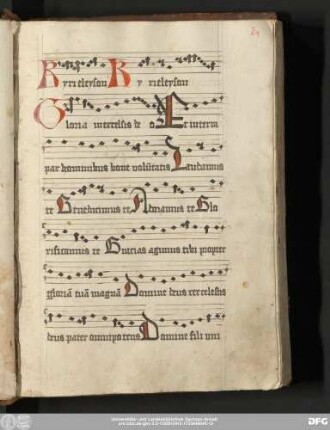 Kyrieleyson Kyrieleyson
Gloria in excelsis deo Et in terra
pax hominibus bone volūtatis Laudamus
te Benedicimus te Adoramus te Glo
rificamus te Gracias agimus tibi propter
gloriā tuā magnā Domine deus rex celestis
deus pater omnipotens Domine fili uni